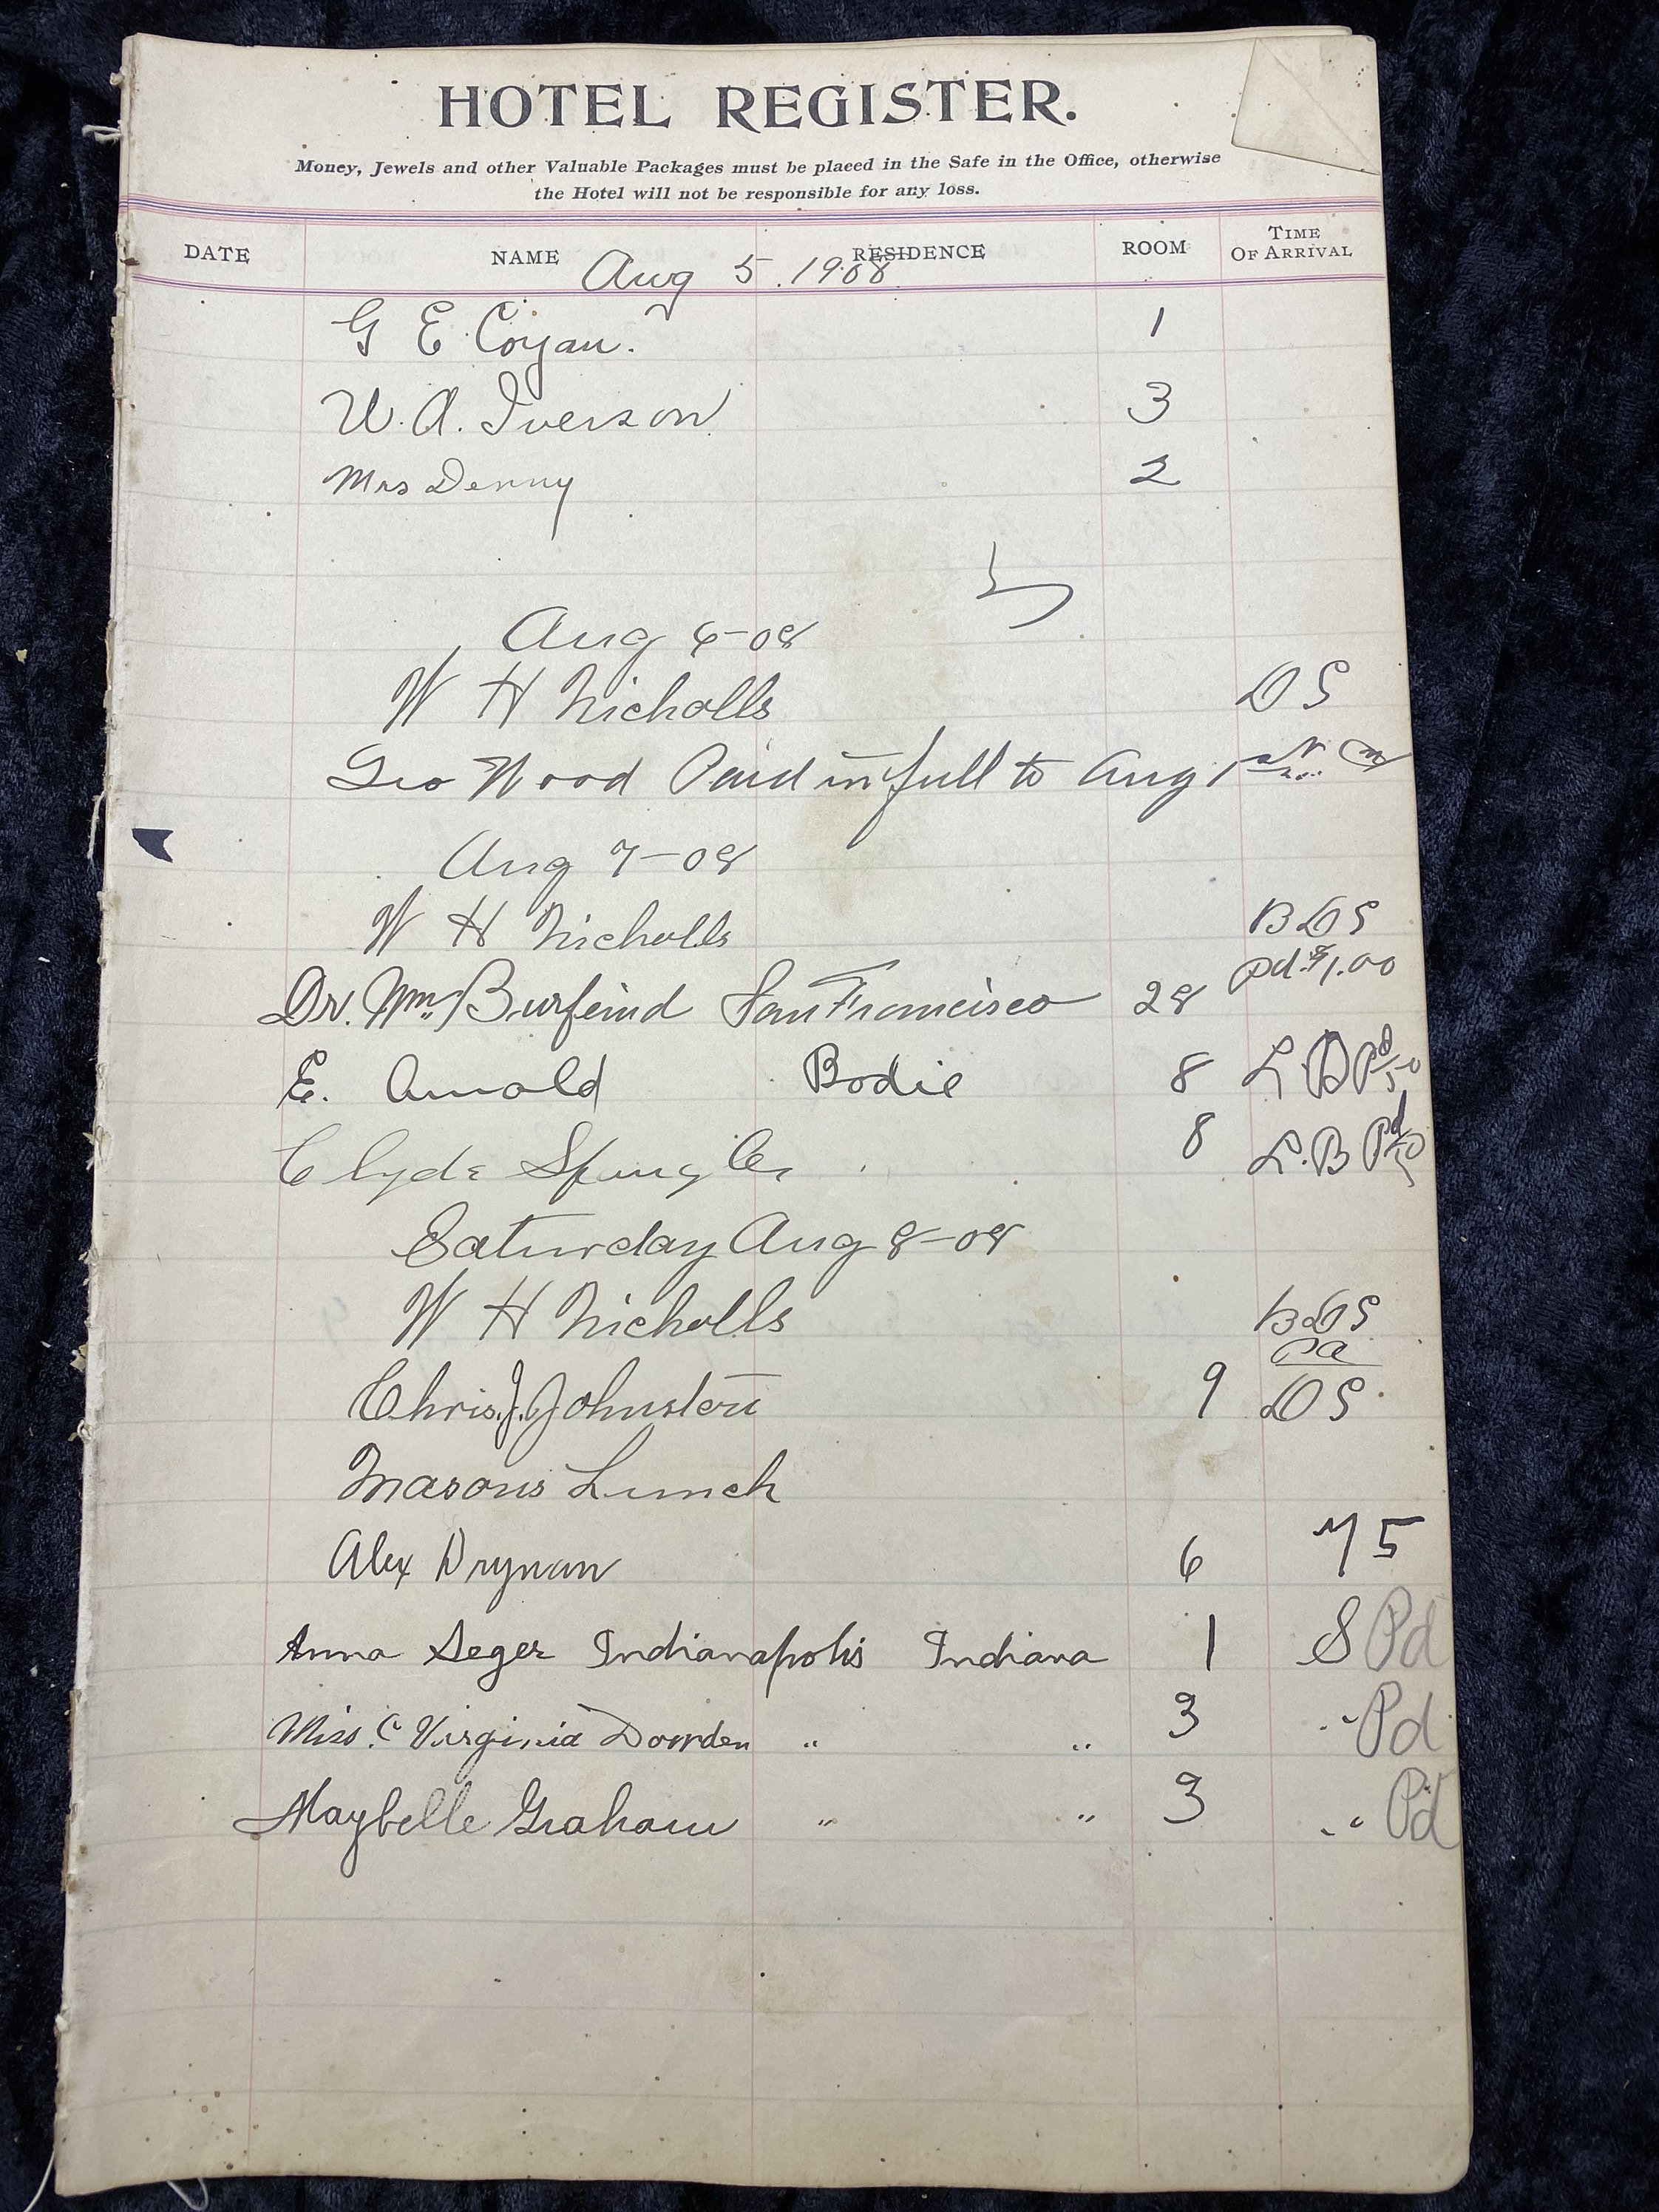 HOTEL REGISTER.
Money, Jewels and other Valuable Packages must be placed in the Safe in the Office, otherwise
the Hotel will not be responsible for any loss.
DATE NAME RESIDENCE ROOM TIME OF ARRIVAL
Aug 5. 1908
G E Coyan. 1
W. A. Iverson 3
Mrs Denny 2
Aug 6-08
W H Nicholls D S
Geo Wood Paid in full to Aug 1st
Aug 7-08
W H Nicholls B D S
Pd. $1.00
Dr. Wm. Burfeind San Francisco 28
E. Arnold Bodie 8 L B Pd 50
Clyde Spangler 8 L. B Pd 50
Saturday Aug 8-08
W H Nicholls B D S
Pd
Chris. J. Johnston 9 D S.
Masons Lunch
Alex Drynan 6 75
Anna Seger Indianapolis Indiana 1 S Pd
Miss. C Virginia Dowden " " 3 " Pd
Maybelle Graham " " 3 " Pd